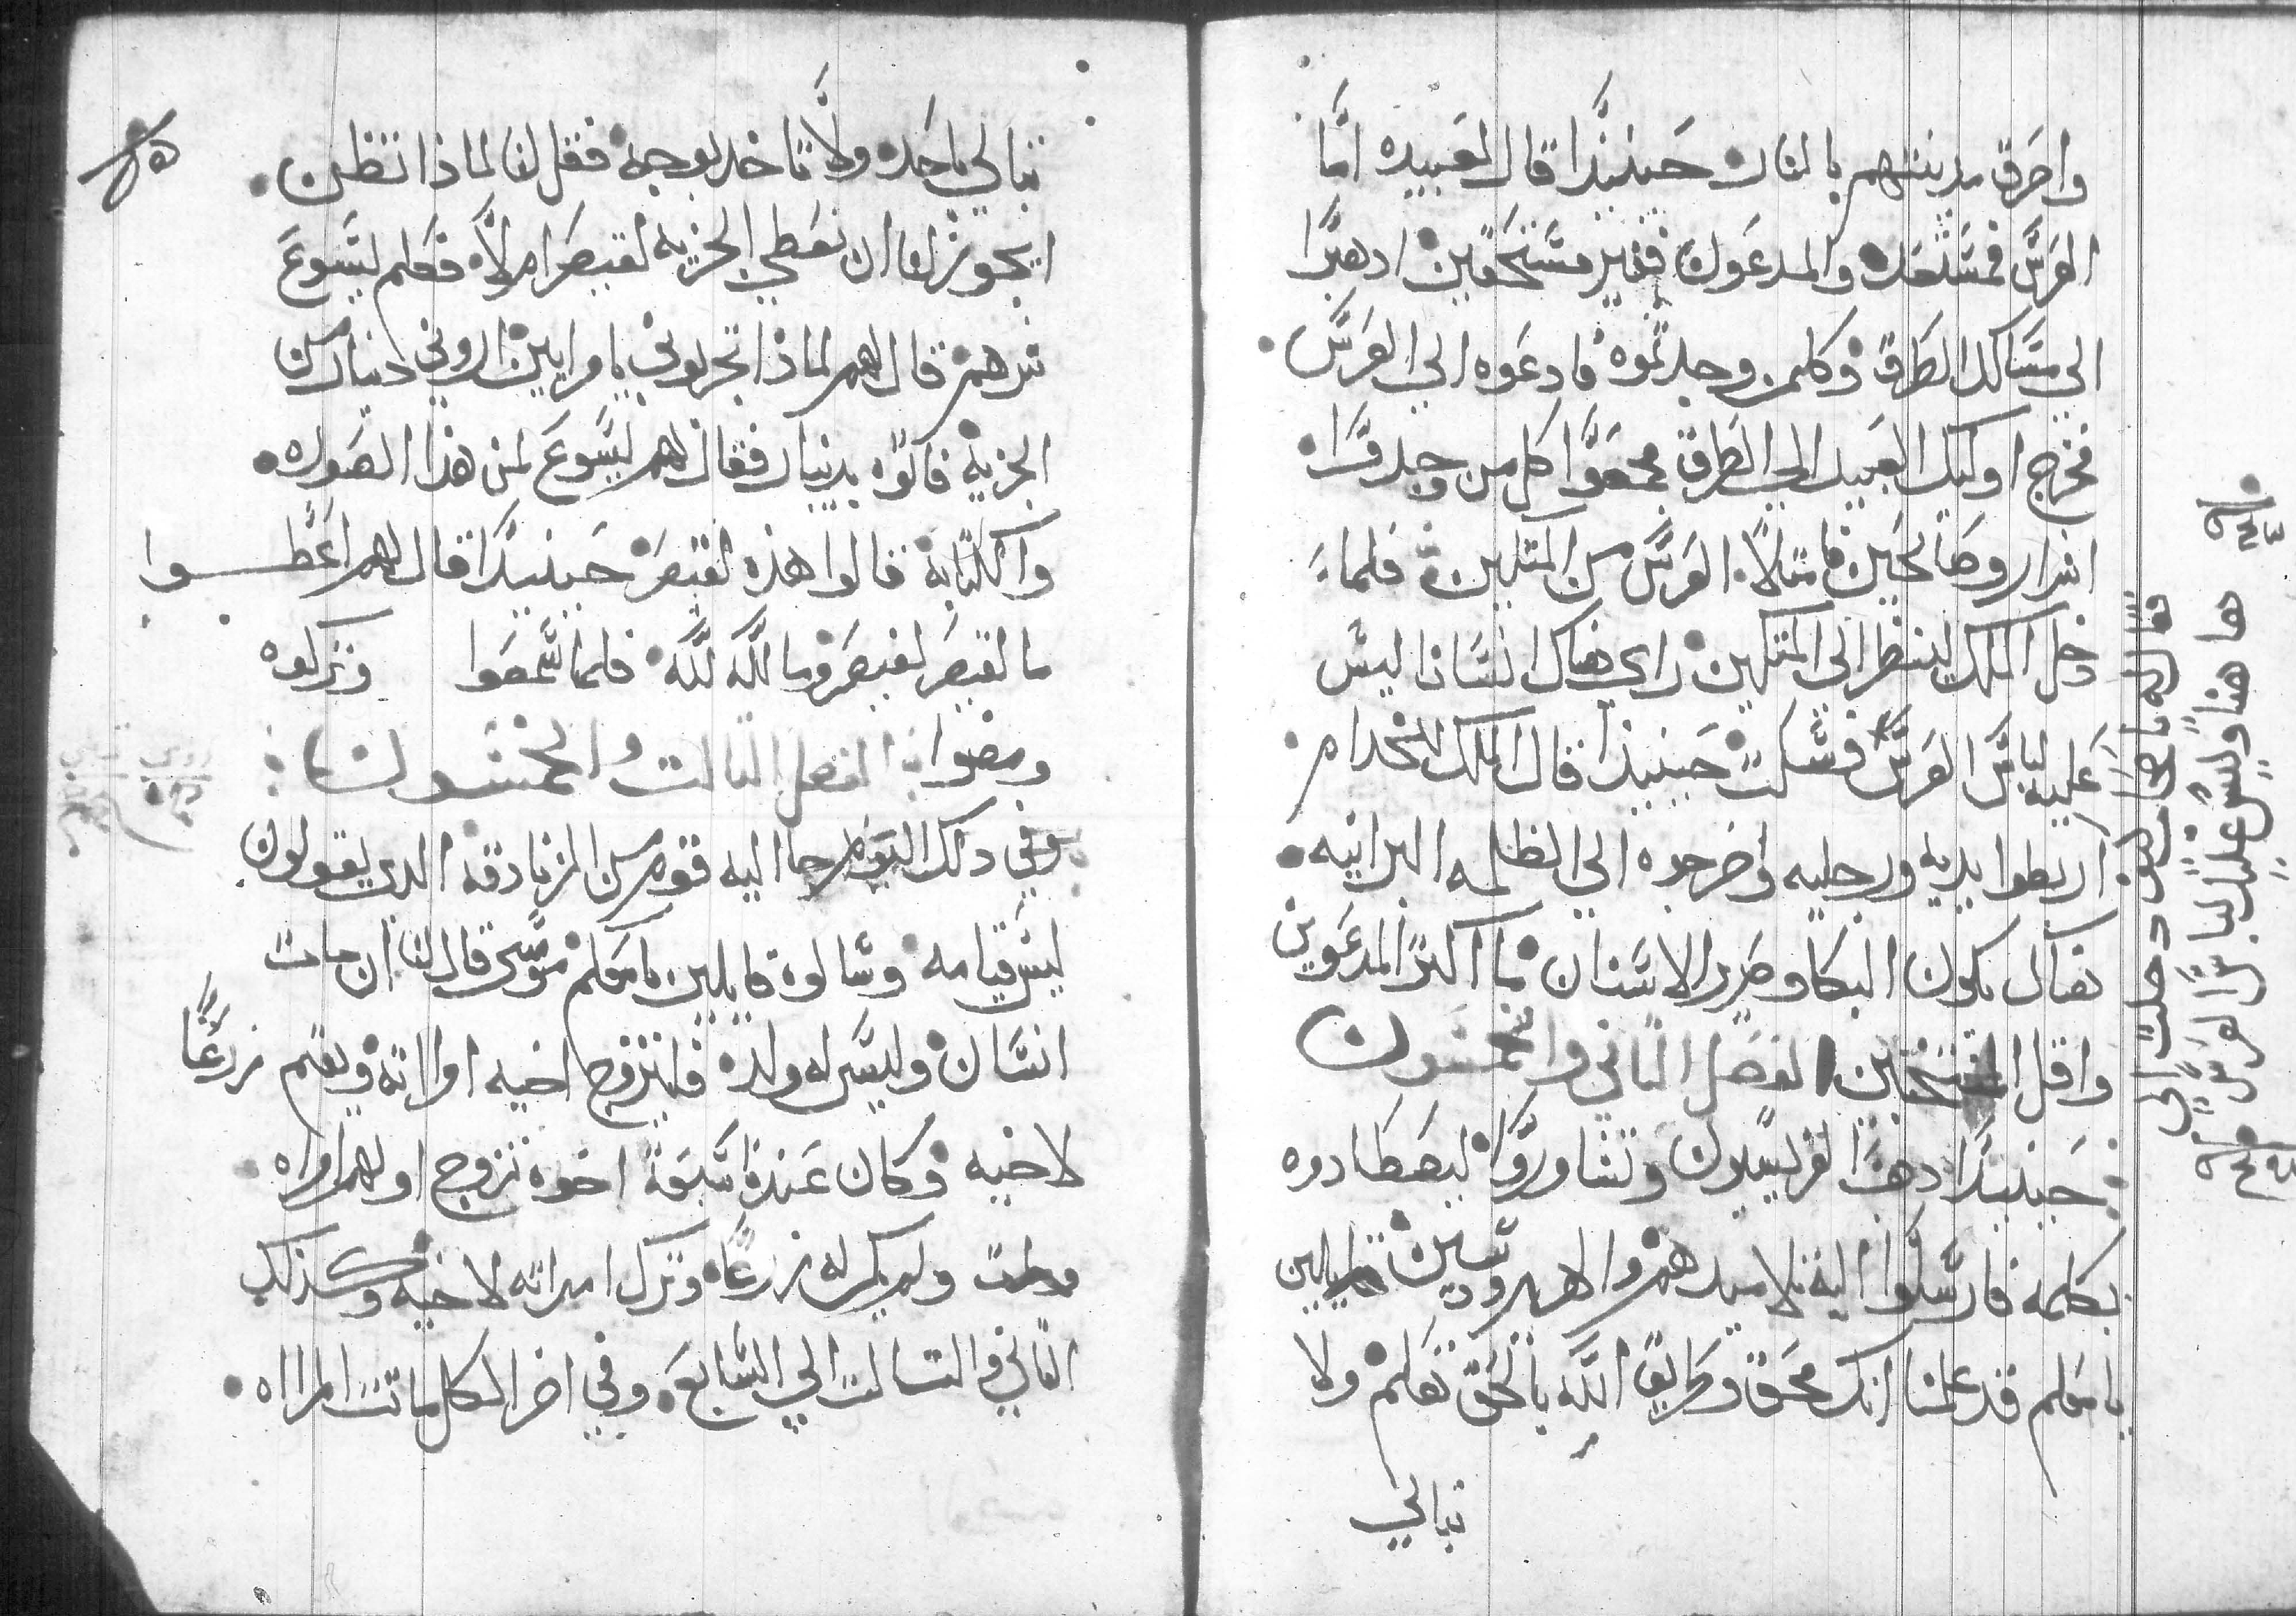 واحرق مدينتهم بالنار حينيذا قال لعبيده اما
العرس فمستعد والمدعون فغير مستحقين ادهبوا
الي مسالك الطرق وكلمن وجدتموه فادعوه الي العرس
فخرج اوليك العبيد الي الطرق فجمعوا كل من وجدوا
اشرار وصالحين فامتلا العرس من المتكيين فلما
دخل الملك لينظر الي المتكيين راي هناك انسانا ليس
عليه لباس العرس فسكت حينيذا قال الملك للخدام
اربطوا يديه ورجليه واخرجوه الي الظلمه البرانيه
هناك يكون البكا وصرير الاسنان ما اكثر المدعوين
واقل المنتخبين الفصل التاني والخمسون
حينيذا دهب الفريسيون وتشاوروا ليصطادوه
بكلمه فارسلوا اليه تلاميدهم والهيرودسين قايلين
يا معلم قد علمنا انك محق وطريق الله بالحق تعلم ولا
تبالي
قال له يا صاحب كيف دخلت الي
ها هنا وليس عليك لباس العرس
تبالي باحد ولا تاخد بوجه فقل لنا لماذا تنظن
ايجوز لنا ان نعطي الجزيه لقيصر ام لا فعلم يسوع
شرهم قال لهم لماذا تجربوني يا مرايين اروني دينار من
الجزيه فاتوه بدينار فقال لهم يسوع لمن هذا الصوره
والكتابه قالوا هذه لقيصر حينيذا قال لهم اعطوا
ما لقيصر لقيصر وما لله لله فلما سمعوا وتركوه
ومضوا الفصل التالت والخمسون
وفي دلك اليوم جا اليه قوم من الزنادقه الدي يقولون
ليس قيامه وسالوه قايلين يا معلم موسى قال لنا ان مات
انسان وليس له ولد فليتزوج اخيه اوالاته ويقيم زرعا
لاخيه وكان عندنا سبعة اخوه تزوج اولهم امراه
ومات ولم يكن له زرعا وترك امراته لاخيه وكذلك
التاني والتالت الي السابع وفي اخر الكل ماتت المراه